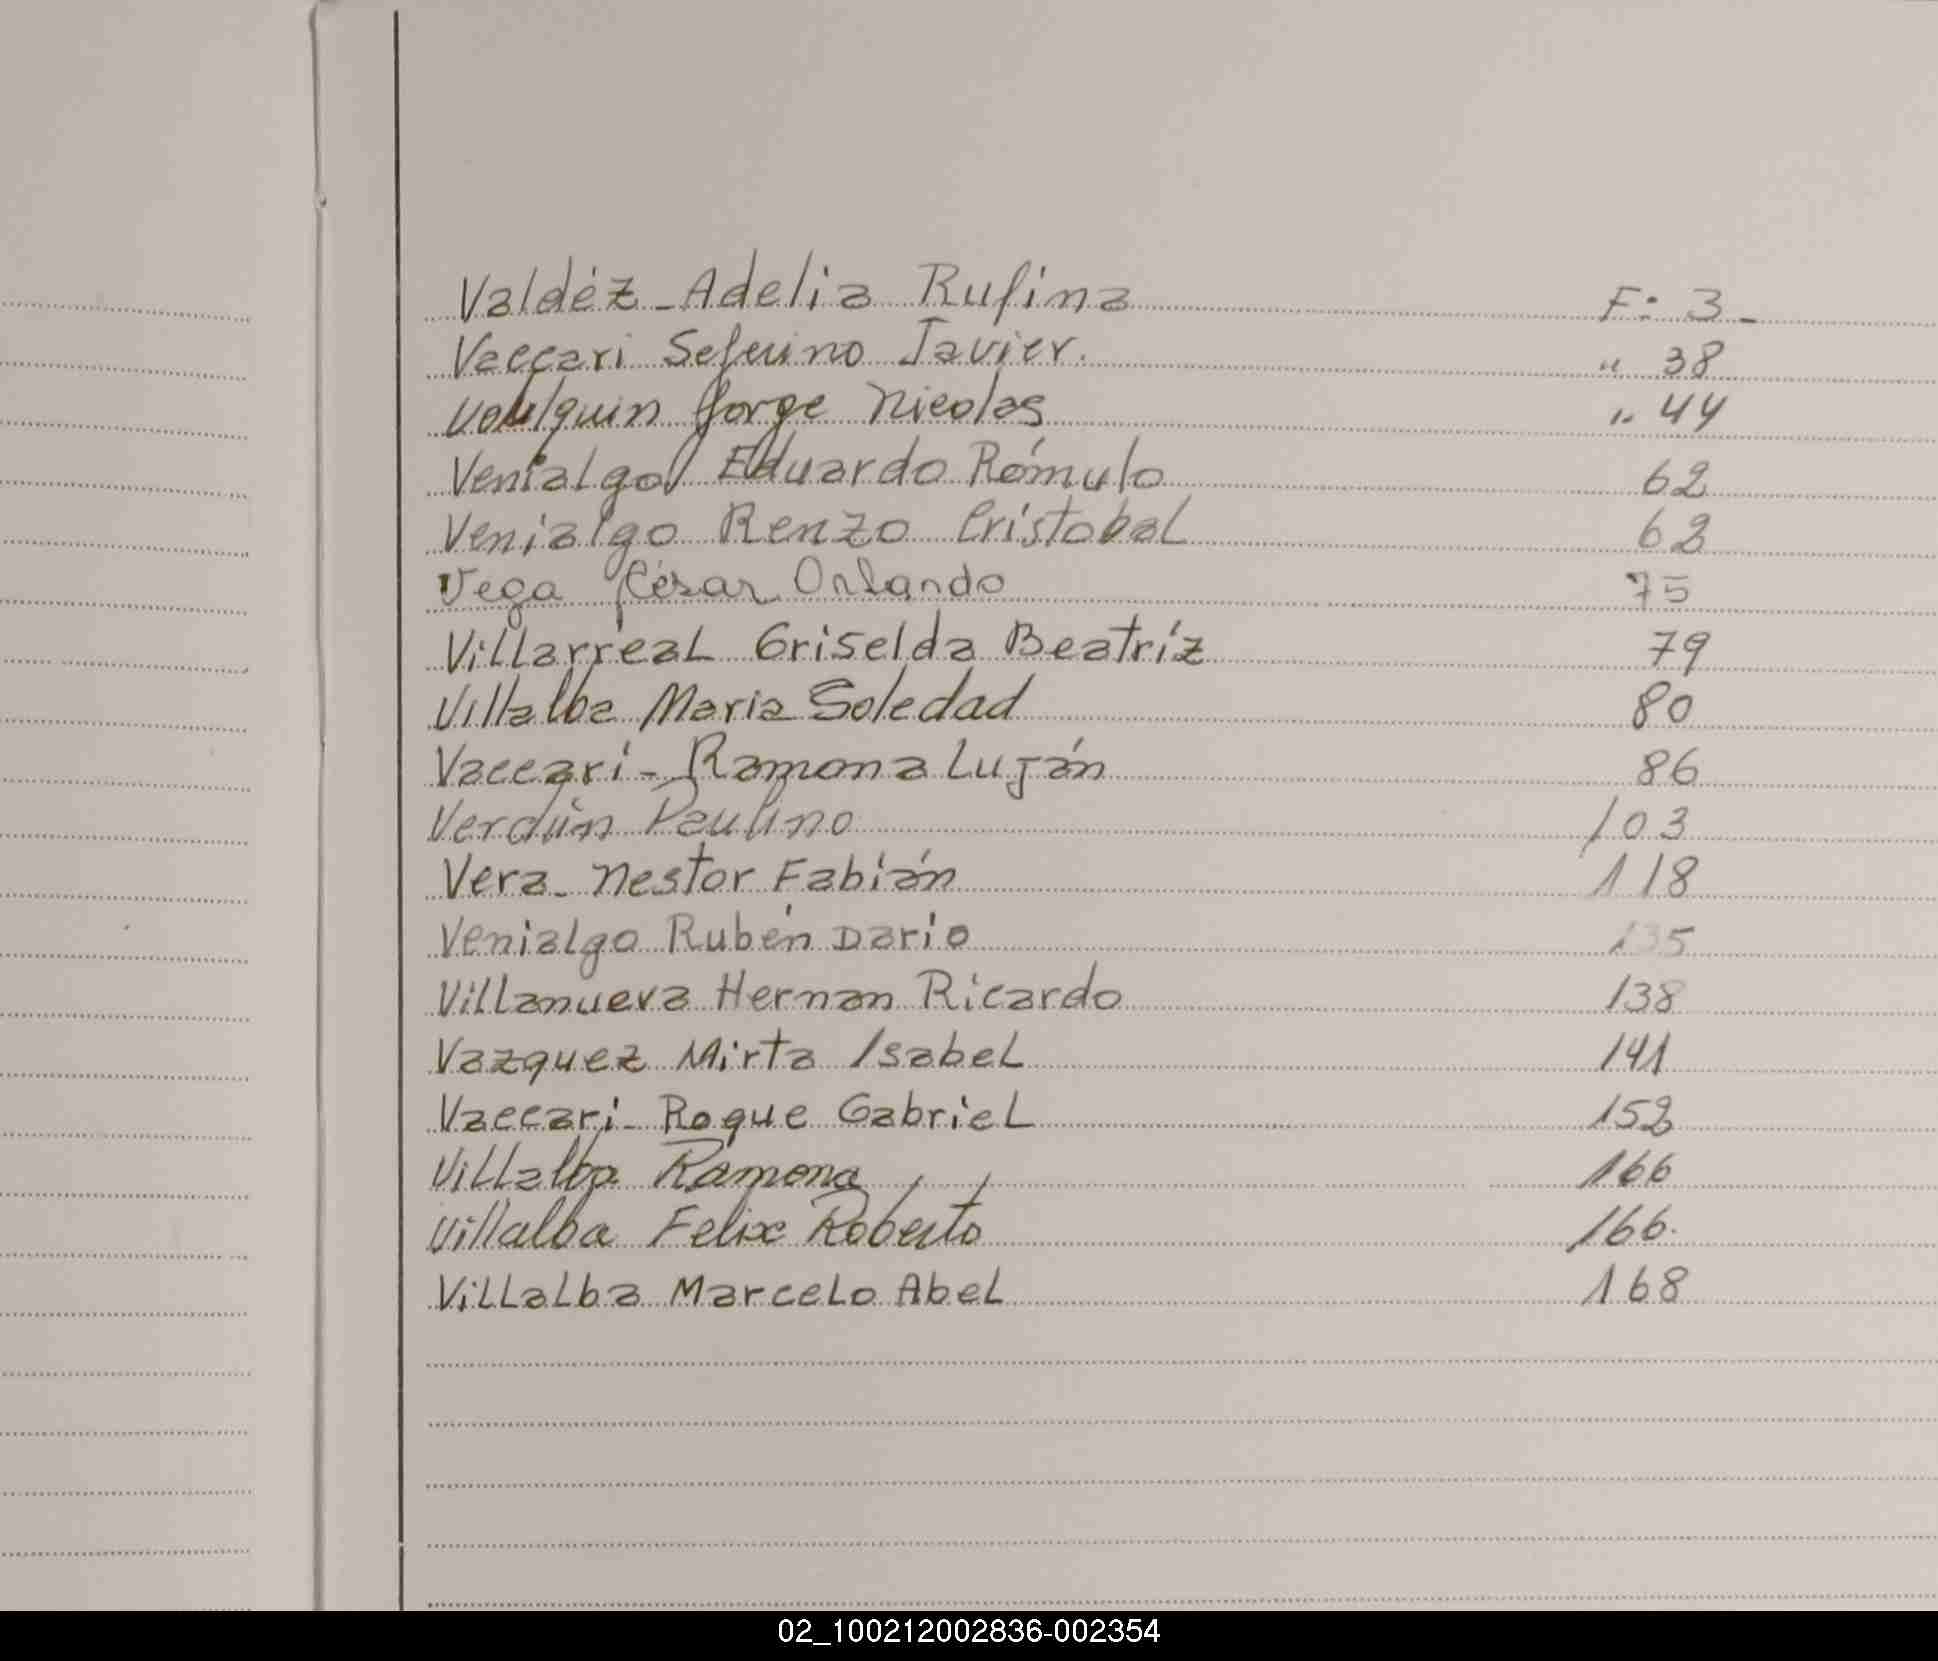 Valdéz - Adelia Rufina F: 3 -
Vaccari Seferino Javier. " 38
Voulquin Jorge Nicolas " 44
Venialgo Eduardo Rómulo 62
Venialgo Renzo Cristobal 62
Vega César Orlando 75
Villarreal Griselda Beatríz 79
Villalba Maria Soledad 80
Vaccari - Ramona Luján 86
Verdún Paulino 103
Vera - Nestor Fabián 118
Venialgo Rubén Dario 135
Villanueva Hernan Ricardo 138
Vazquez Mirta Isabel 141
Vaccari - Roque Gabriel 152
Villalba Ramona 166
Villalba Felix Roberto 166.
Villalba Marcelo Abel 168
02_100212002836-002354